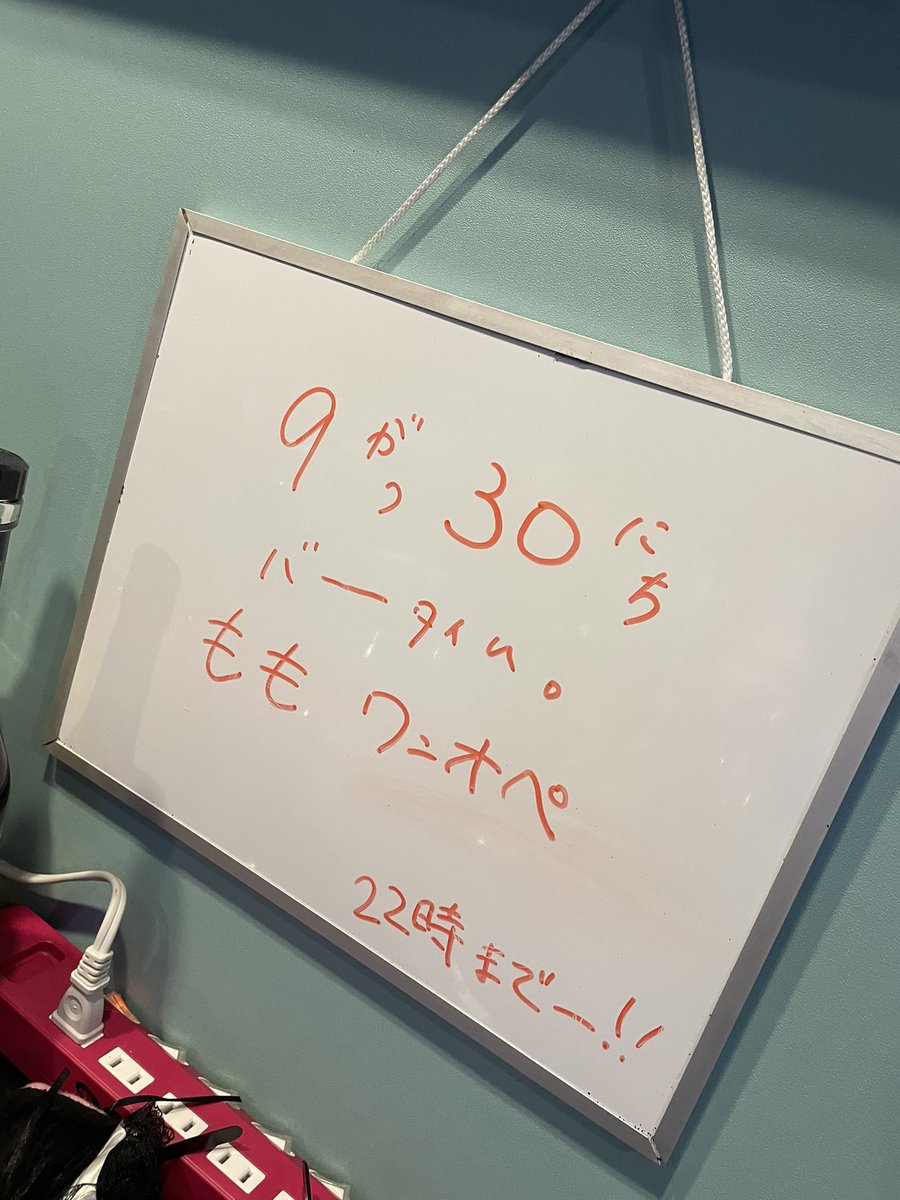 9がつ30にち
バータイム。
ももワンオペ
22時までー!!